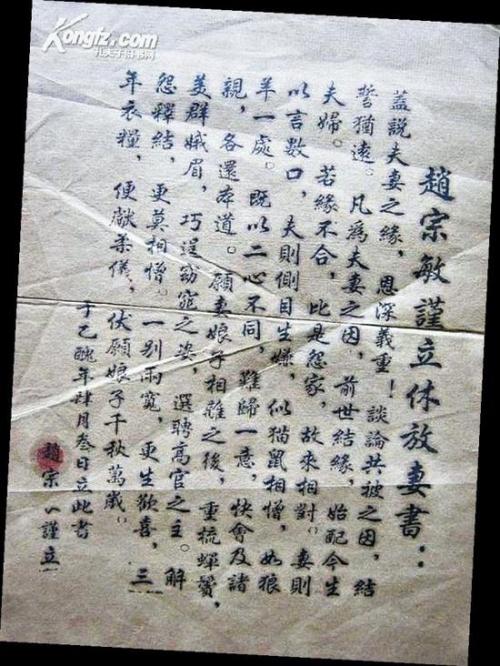 Kongfz.com
孔夫子旧书网
趙宗敏謹立休放妻書：
蓋説夫妻之緣，恩深義重！談論共被之因，結
誓猶遠。凡爲夫妻之因，前世結緣，始配今生
夫婦。若緣不合，比是怨家，故來相對。妻則
以言數口，夫則側目生嫌，似猫鼠相憎，如狼
羊一處。既以二心不同，難歸一意，快會及諸
親，各還本道。願妻娘子相離之後，重梳蟬鬢，
美群娥眉，巧逞窈窕之姿，選聘高官之主。解
怨釋結，更莫相憎。一别兩寬，更生歡喜，三
年衣糧，便獻柔儀，伏願娘子千秋萬歲。
于乙醜年肆月叁日立此書
趙宗謹立